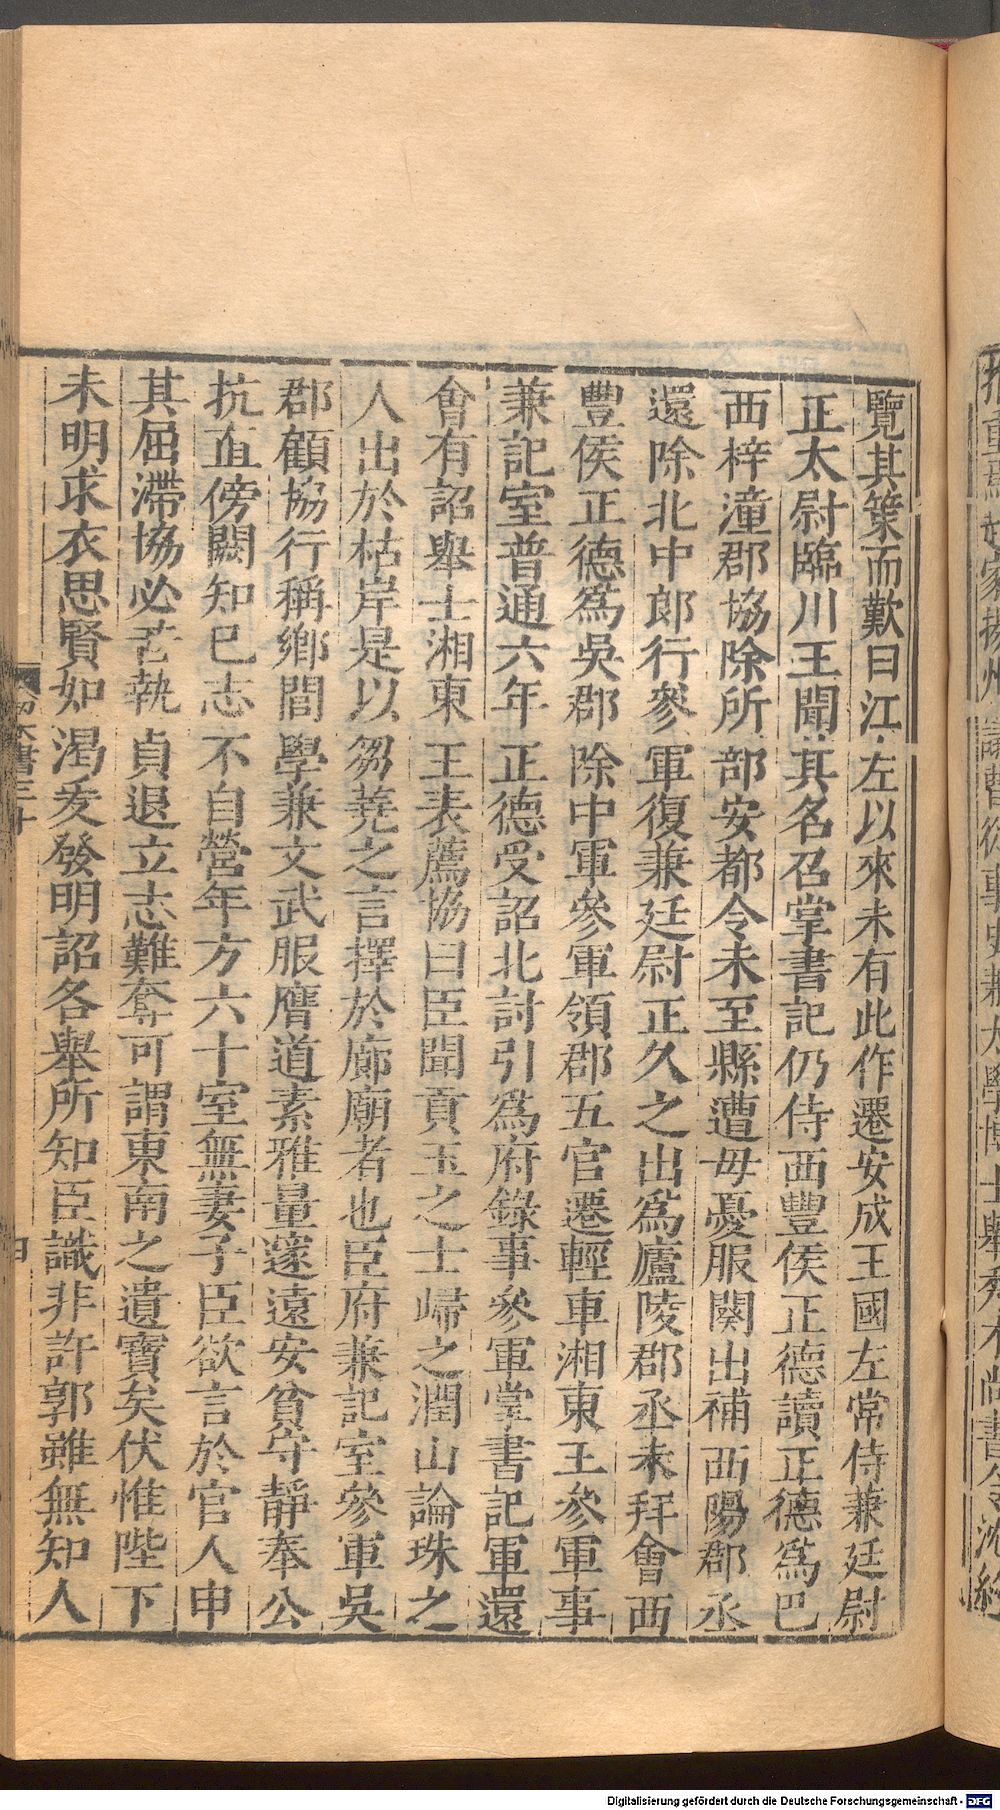 覽其策而歎曰江左以來未有此作遷安成王國左常侍兼廷尉
正太尉臨川王聞其名召掌書記仍侍西豐侯正德讀正德爲巴
西梓潼郡協除所部安都令未至縣遭毋憂服闋出補西陽郡丞
還除北中郎行參軍復兼廷尉正久之出爲廬陵郡丞未拜會西
豐侯正德爲吳郡除中軍參軍領郡五官遷輕車湘東王參軍事
兼記室普通六年正德受詔北討引爲府錄事參軍掌書記軍還
會有詔舉士湘東王表薦協曰臣聞貢玉之士歸之潤山論珠之
人出於枯岸是以芻蕘之言擇於廊廟者也臣府兼記室參軍吳
郡顧協行稱鄉閭學兼文武服膺道素雅量邃遠安貧守靜奉公
抗直傍闕知已志不自營年方六十室無妻子臣欲言於官人申
其屈滯協必苦執貞退立志難奪可謂東南之遺寶矣伏惟陛下
未明求衣思賢如渴爰發明詔各舉所知臣識非許郭雖無知人
梁書三十
Digitalisierung gefördert durch die Deutsche Forschungsgemeinschaft - DFG